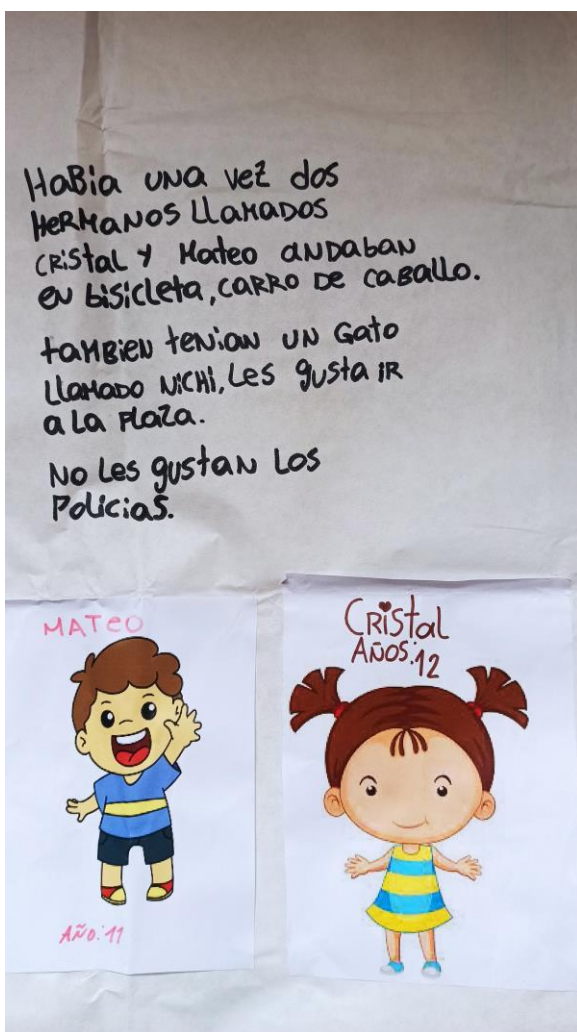 HaBia UNa Vez dos
HeRMaNOS LLaMaDOS
CRiStaL Y Mateo aNDaban
eN bisicleta, CaRRO De CaBallo.
taMBieN teNiaN UN Gato
LLaMaDO NiCHi, Les gusta iR
a La PLaza.
No Les gustaN Los
Policias.
MATeO
AÑO: 11
CRiStal
AÑOS: 12